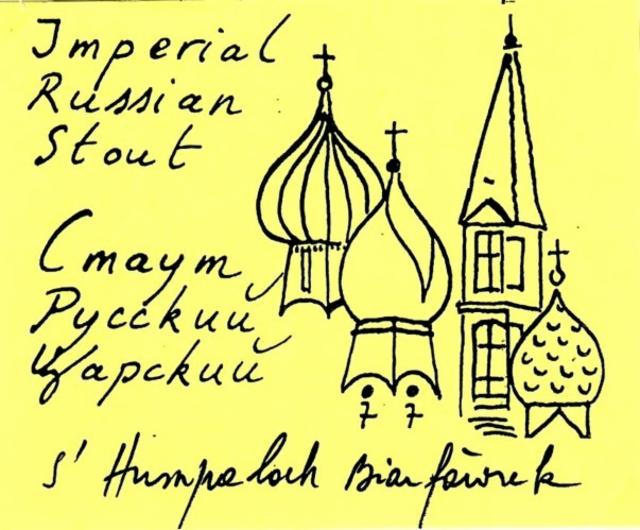 Imperial
Russian
Stout
Стаут
Русский
Царский
7 7
S' Humpaloch Biarfàwrek